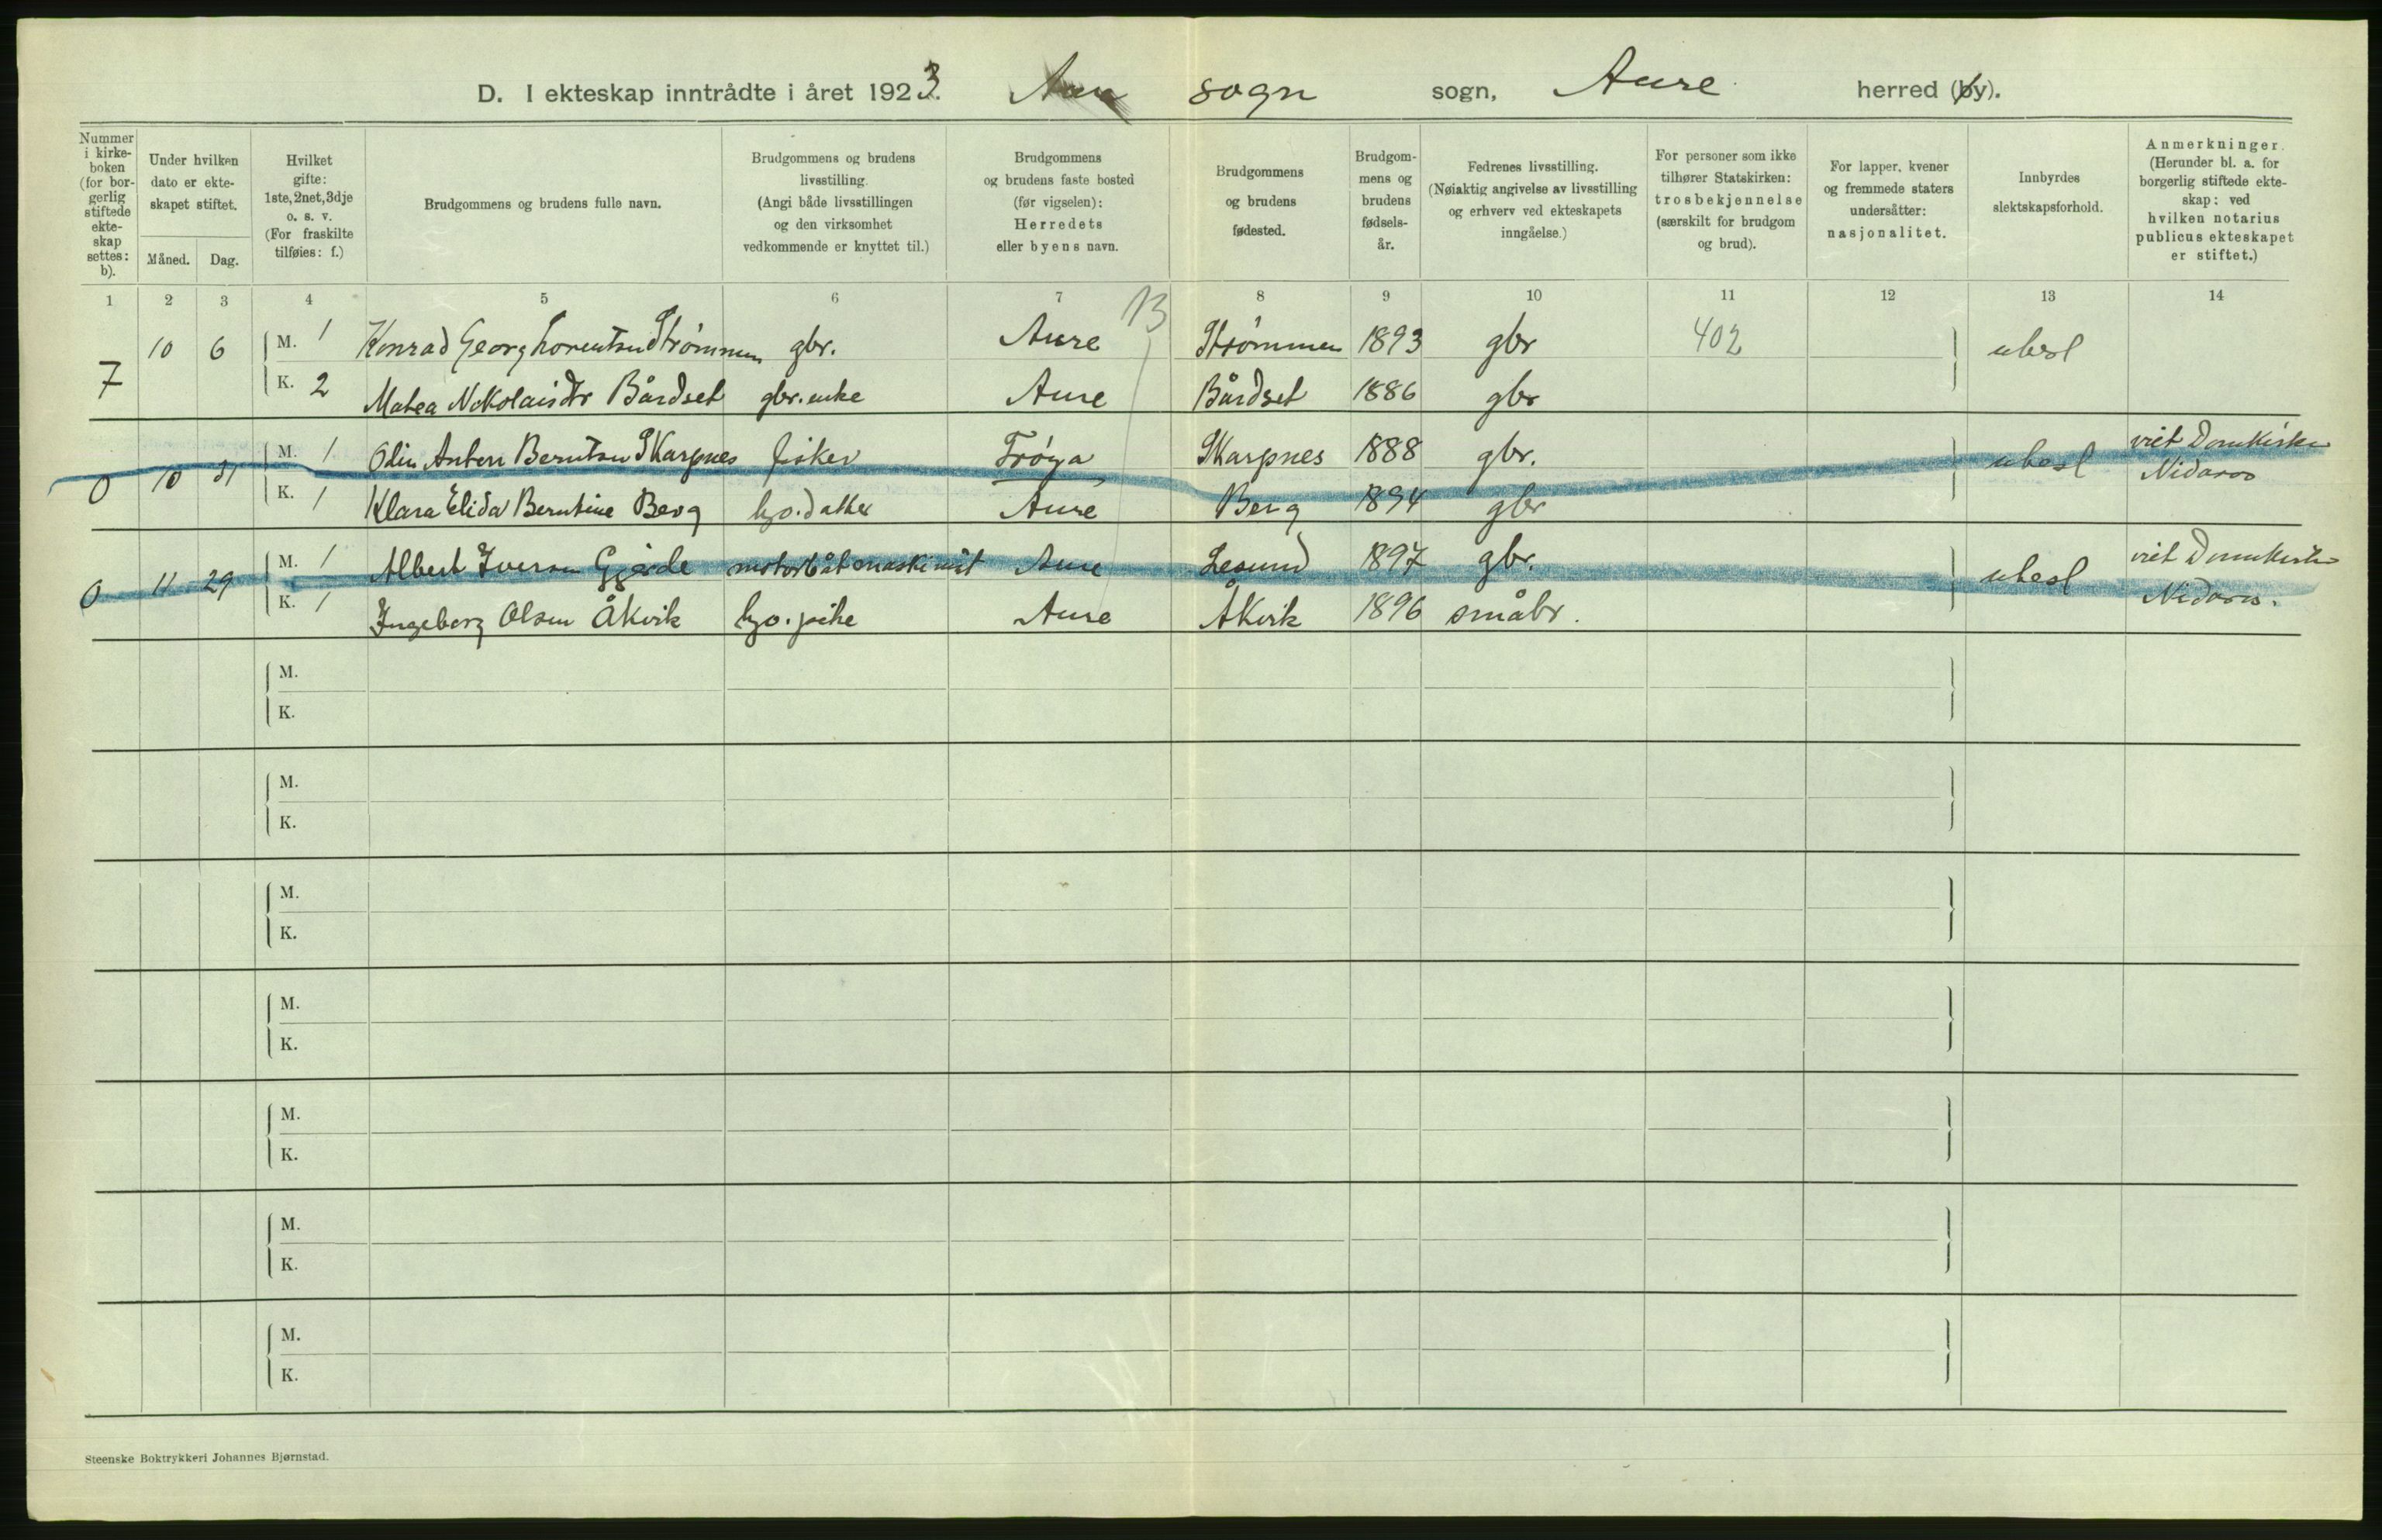 D. I ekteskap inntrådte i året 1923. sogn sogn, Aure herred (by).
Nummer i kirke-boken (for bor-gerlig stiftede ekte-skap settes: b).
Under hvilken dato er ekte-skapet stiftet.
Måned. Dag.
Hvilket gifte: 1ste, 2net, 3dje o. s. v. (For fraskilte tilføies: f.)
Brudgommens og brudens fulle navn.
Brudgommens og brudens livsstilling. (Angi både livsstillingen og den virksomhet vedkommende er knyttet til.)
Brudgommens og brudens faste bosted (før vigselen): Herredets eller byens navn.
Brudgommens og brudens fødested.
Brudgom-mens og brudens fødsels-år.
Fedrenes livsstilling. (Nøiaktig angivelse av livsstilling og erhverv ved ekteskapets inngåelse.)
For personer som ikke tilhører Statskirken: trosbekjennelse (særskilt for brudgom og brud).
For lapper, kvener og fremmede staters undersåtter: nasjonalitet.
Innbyrdes slektskapsforhold.
Anmerkninger. (Herunder bl. a. for borgerlig stiftede ekte-skap: ved hvilken notarius publicus ekteskapet er stiftet.)
1 2 3 4 5 6 7 8 9 10 11 12 13 14
13
7 10 6 M. 1 Konrad Georg Lorentsen Strømmen gbr. Aure Strømmen 1893 gbr 402 ubesl
K. 2 Matea Nikolaisdtr Bårdset gbr. enke Aure Bårdset 1886 gbr
0 10 31 M. 1 Olin Anton Berntsen Skarpnes fisker Frøya Skarpnes 1888 gbr. ubesl viet Domkirken
K. 1 Klara Elida Berntine Berg hjo. datter Aure Berg 1894 gbr Nidaros
0 11 29 M. 1 Albert Iversen Gjerde motorbåtmaskinist Aure Lesund 1897 gbr. ubesl viet Domkirken
K. 1 Ingeborg Olsen Åkvik hjo. pike Aure Åkvik 1896 småbr. Nidaros.
M.
K.
M.
K.
M.
K.
M.
K.
M.
K.
M.
K.
M.
K.
Steenske Boktrykkeri Johannes Bjørnstad.